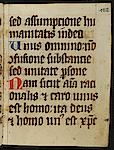 sed assumpcione hu
manitatis in deo
Unus omnino nō
ɔfusione substancie
sed unitate psone
Nam sicut aīa raci
onalis ⁊ caro unus
est homo ita deus
⁊ homo un⁹ est xp̄c